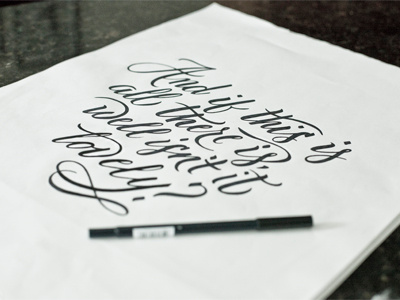 And if this is
all there is,
well isn't it
lovely?